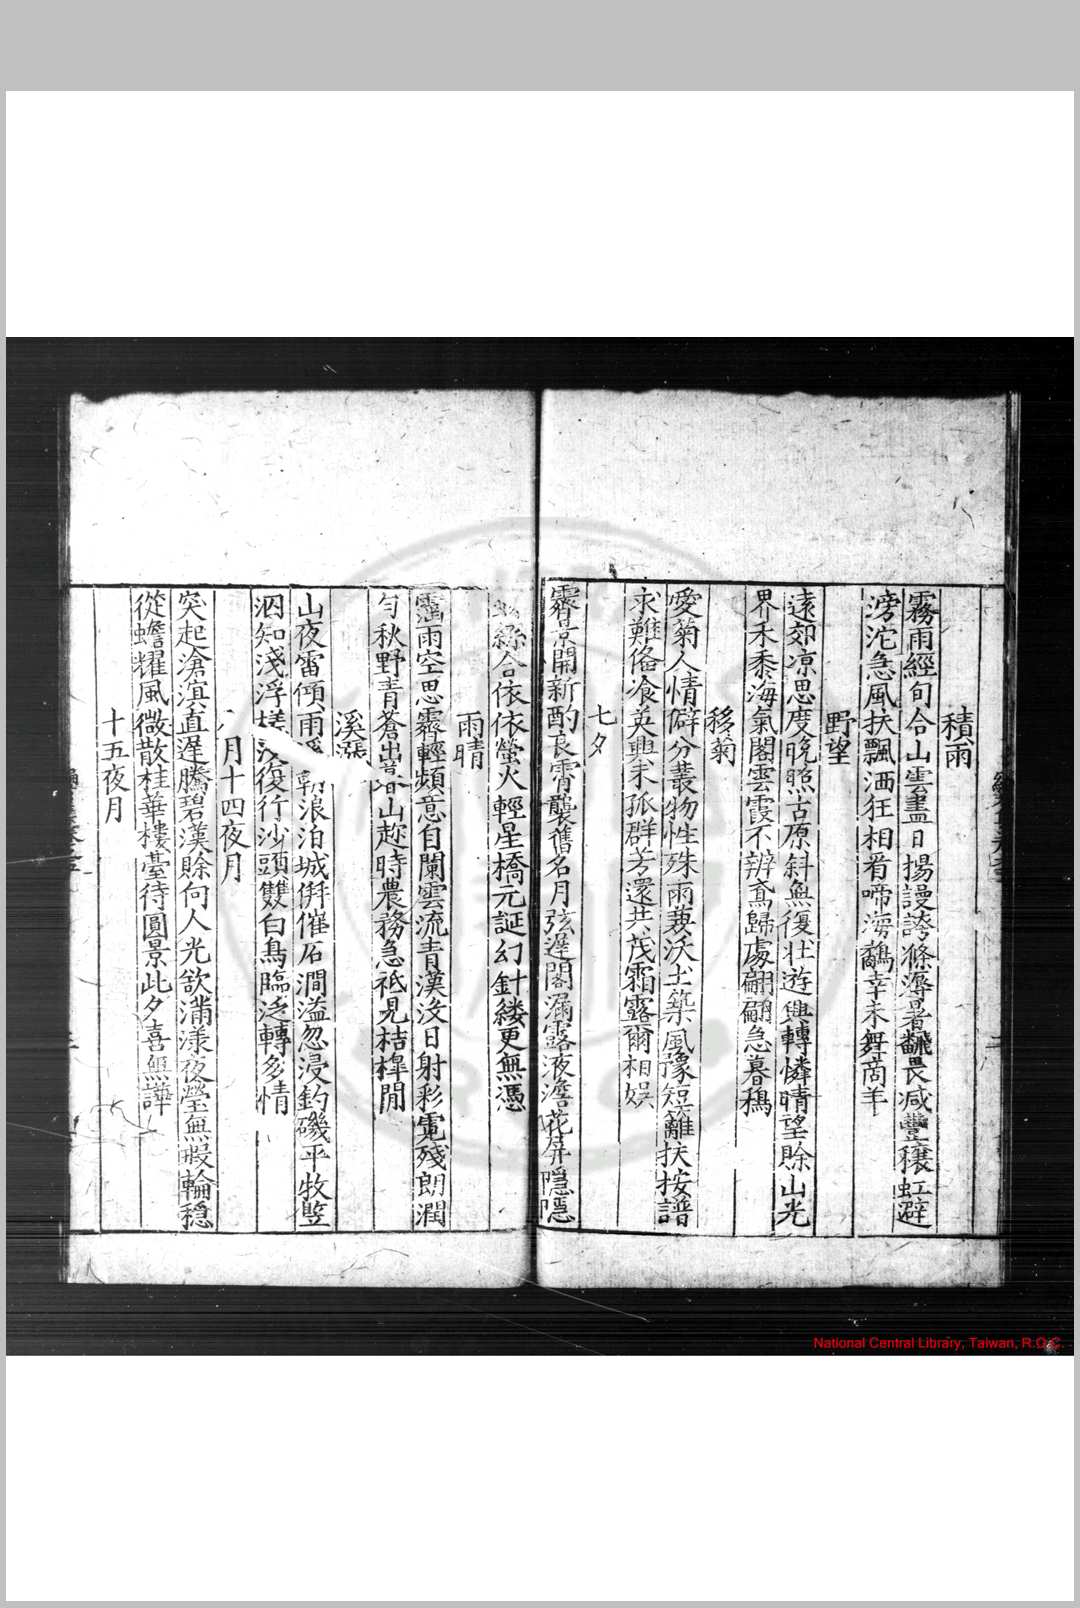 積雨
霧雨經旬合山雲盡日揚謾誇絛溽暑飜畏减豐穰虹避
滂沱急風扶飄洒狂相看啼海鸛幸未舞商羊
野望
遠郊凉思度晚照古原斜無復壯遊興轉憐晴望賒山光
界禾黍海氣閣雲霞不辨鳶歸處翩翩急暮鴉
移菊
愛菊人情僻分叢物性殊雨蒸沃土築風豫短籬扶按譜
求難偹飡英興未孤群芳還共茂霜露爾相娛
七夕
霽景開新酌良霄襲舊名月弦遲閣漏露液澹花屏隱隱
絲合依依螢火輕星橋元誕幻針縷更無憑
雨晴
霑雨空思霽輕頻意自闌雲流青漢没日射彩霓殘朗潤
勻秋野青蒼出暮山趂時農務急祗見桔槹閒
溪漲
山夜雷傾雨 朝浪泊城傡催石澗溢忽浸釣磯平牧豎
泅知淺浮槎没復行沙頭雙白鳥臨泛轉多情
八月十四夜月
突起滄溟直遲騰碧漢賒向人光欲滿漾夜瑩無瑕輪穏
從蟾耀風微散桂華樓臺待圓景此夕喜無譁
十五夜月
National Central Library, Taiwan, R.O.C.